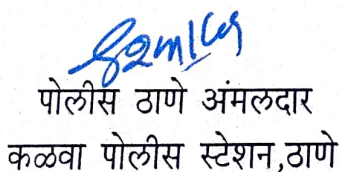 पोलीस ठाणे अंमलदार
कळवा पोलीस स्टेशन,ठाणे